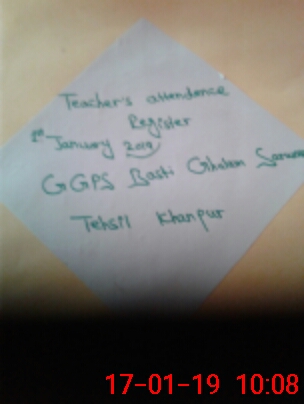 Teacher's attendence
Register
1st January 2019
GGPS Basti Gholam Sarwar
Tehsil Khanpur
17-01-19 10:08